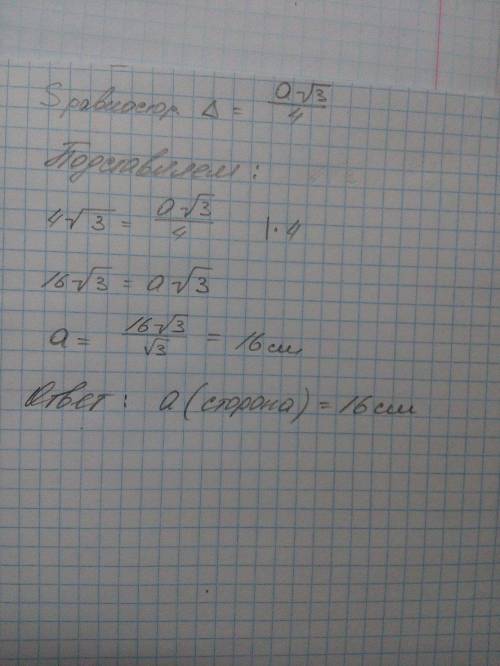 S равностор. Δ = a√3/4
Подставляем:
4√3 = a√3/4 |·4
16√3 = a√3
a = 16√3/√3 = 16 см
Ответ: a (сторона) = 16 см